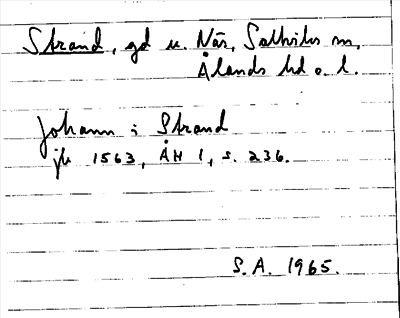 Strand, gd u. Näs, Saltviks sn,
Ålands hd o. l.
Johann i Strand
jb 1563, ÅH 1, s. 236.
S.A. 1965.